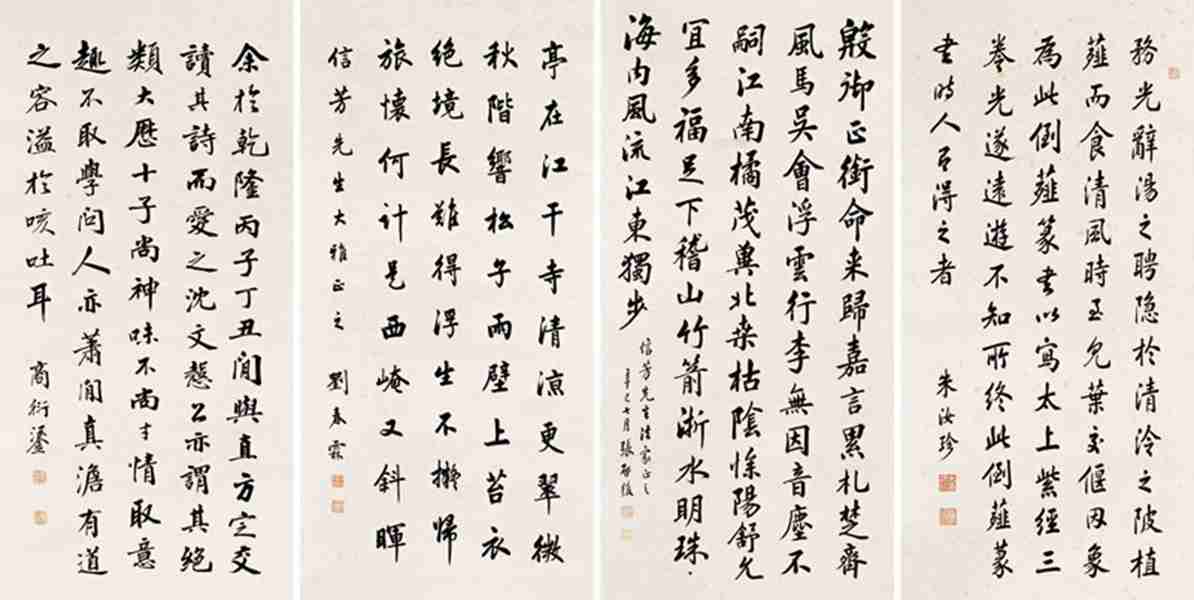 務光辭湯之聘隐於清泠之陂植
薤而食清風時至見葉交偃因象
為此倒薤篆書以寫太上紫經三
卷光遂遠遊不知所終此倒薤篆
書時人有得之者
朱汝珍
殿御正銜命来歸嘉言累札楚齊
風馬吳會浮雲行李無因音塵不
嗣江南橘茂冀北桑枯陰慘陽舒允
宜多福足下稽山竹箭浙水明珠
海内風流江東獨步
信芳先生法家正之
辛巳七月張啟後
亭在江干寺清涼更翠微
秋階響松子雨壁上苔衣
絕境長難得浮生不擬歸
旅懷何計是西崦又斜暉
信芳先生大雅正之 劉春霖
余於乾隆丙子丁丑間與直方定交
讀其詩而愛之沈文慤公亦謂其絕
類大厯十子尚神味不尚才情取意
趣不取學问人亦蕭閒真澹有道
之容溢於咳吐耳
商衍鎏